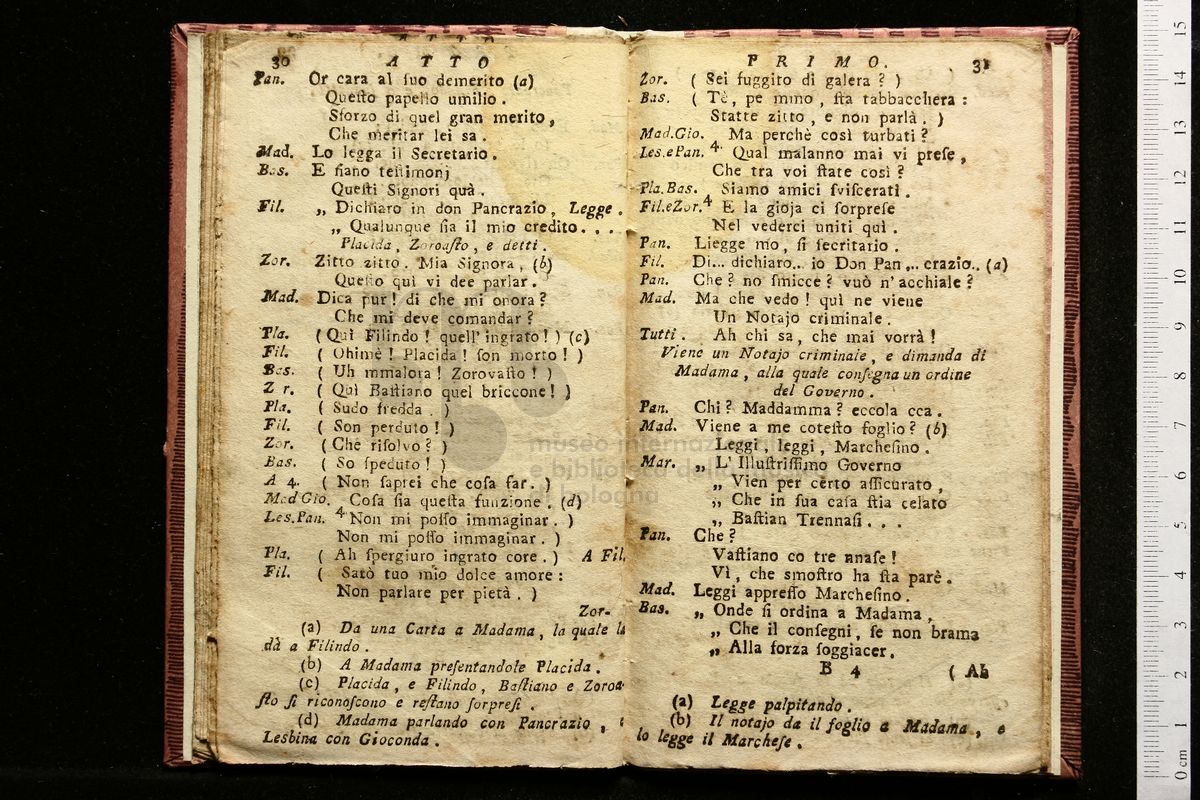 30 ATTO
Pan. Or cara al ſuo demerito (a)
Queſto papello umilio.
Sforzo di quel gran merito,
Che meritar lei sa.
Mad. Lo legga il Secretario.
Bas. E ſiano teſtimonj
Queſti Signori quà.
Fil. „ Dichiaro in don Pancrazio, Legge.
„ Qualunque ſia il mio credito....
Placida, Zoroaſto, e detti.
Zor. Zitto zitto. Mia Signora, (b)
Queſto quì vi dee parlar.
Mad. Dica pur! di che mi onora?
Che mi deve comandar?
Pla. (Quì Filindo! quell' ingrato!) (c)
Fil. ( Ohimè! Placida! ſon morto! )
Bas. ( Uh mmalora! Zorovaſto! )
Z r. ( Quì Baſtiano quel briccone! )
Pla. ( Sudo fredda. )
Fil. ( Son perduto! )
Zor. ( Che riſolvo? )
Bas. ( So ſpeduto! )
A 4. ( Non ſaprei che coſa far. )
Mad Gio. Coſa ſia queſta funzione. (d)
Les.Pan. 4 Non mi poſſo immaginar. )
Non mi poſſo immaginar. )
Pla. ( Ah ſpergiuro ingrato core. ) A Fil.
Fil. ( Satò tuo mio dolce amore:
Non parlare per pietà. )
Zor-
(a) Da una Carta a Madama, la quale la
dà a Filindo.
(b) A Madama preſentandole Placida.
(c) Placida, e Filindo, Baſtiano e Zoroa-
ſto ſi riconoſcono e reſtano ſorpreſi.
(d) Madama parlando con Pancrazio, e
Lesbina con Gioconda.
PRIMO. 31
Zor. ( Sei fuggito di galera? )
Bas. ( Tè, pe mmo, ſta tabbacchera:
Statte zitto, e non parlà. )
Mad.Gio. Ma perchè così turbati?
Les.ePan. 4. Qual malanno mai vi preſe,
Che tra voi ſtate così?
Pla.Bas. Siamo amici ſviſcerati.
Fil.eZor. 4 E la gioja ci ſorpreſe
Nel vederci uniti quì.
Pan. Liegge mo, ſi ſecritario.
Fil. Di... dichiaro... io Don Pan... crazio.. (a)
Pan. Che? no ſmicce? vuò n' acchiale?
Mad. Ma che vedo! quì ne viene
Un Notajo criminale.
Tutti. Ah chi sa, che mai vorrà!
Viene un Notajo criminale, e dimanda di
Madama, alla quale conſegna un ordine
del Governo.
Pan. Chi? Maddamma? eccola cca.
Mad. Viene a me coteſto foglio? (b)
Leggi, leggi, Marcheſino.
Mar. „ L' Illuſtriſſimo Governo
„ Vien per certo aſſicurato,
„ Che in ſua caſa ſtia celato
„ Baſtian Trennaſi...
Pan. Che?
Vaſtiano co tre nnaſe!
Vì, che smoſtro ha ſta parê.
Mad. Leggi appreſſo Marcheſino.
Bas. „ Onde ſi ordina a Madama,
„ Che il conſegni, ſe non brama
„ Alla forza ſoggiacer.
B 4 ( Ah
(a) Legge palpitando.
(b) Il notajo da il foglio a Madama, e
lo legge il Marcheſe.
museo internazionale
e biblioteca della musica
di bologna